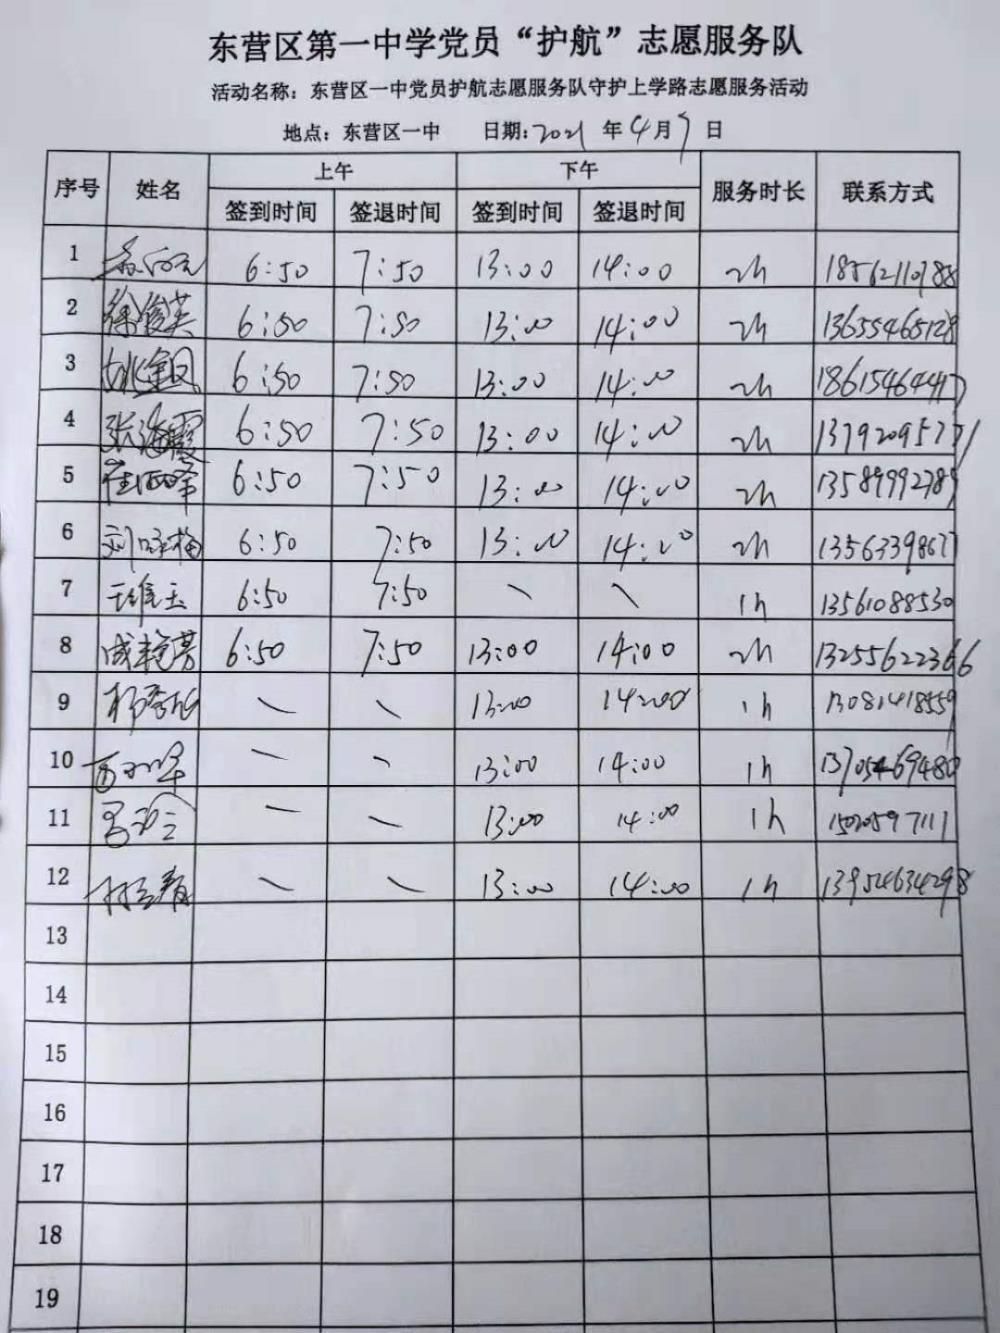 东营区第一中学党员“护航”志愿服务队
活动名称：东营区一中党员护航志愿服务队守护上学路志愿服务活动
地点：东营区一中 日期：2021 年 4 月 9 日
序号 姓名 上午 下午 服务时长 联系方式
签到时间 签退时间 签到时间 签退时间
1 6:50 7:50 13:00 14:00 2h 18562110788
2 徐俊英 6:50 7:50 13:00 14:00 2h 13655465128
3 姚金凤 6:50 7:50 13:00 14:00 2h 18615464417
4 张海霞 6:50 7:50 13:00 14:00 2h
5 崔丽峰 6:50 7:50 13:00 14:00 2h 13589992789
6 刘咏梅 6:50 7:50 13:00 14:00 2h 13563398677
7 王维玉 6:50 7:50 \ \ 1h 13561088530
8 成艳芳 6:50 7:50 13:00 14:00 2h 13255622366
9 \ \ 13:00 14:00 1h 13081418559
10 \ \ 13:00 14:00 1h 13705469480
11 \ \ 13:00 14:00 1h 15020597111
12 \ \ 13:00 14:00 1h 13954634298
13
14
15
16
17
18
19